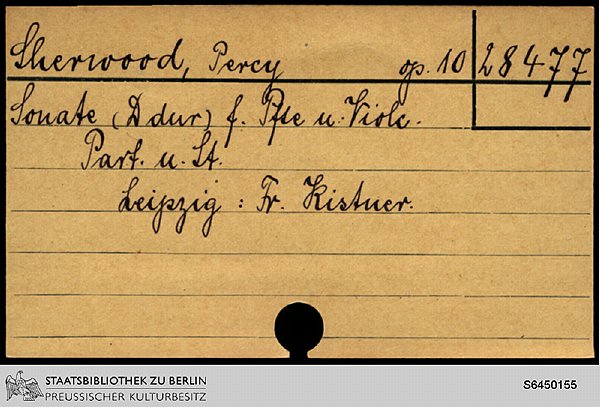 Sherwood, Percy op. 10 28477
Sonate (D dur) f. Pfte u. Violc.
Part. u. St.
Leipzig : Fr. Kistner.
STAATSBIBLIOTHEK ZU BERLIN
PREUSSISCHER KULTURBESITZ
S6450155